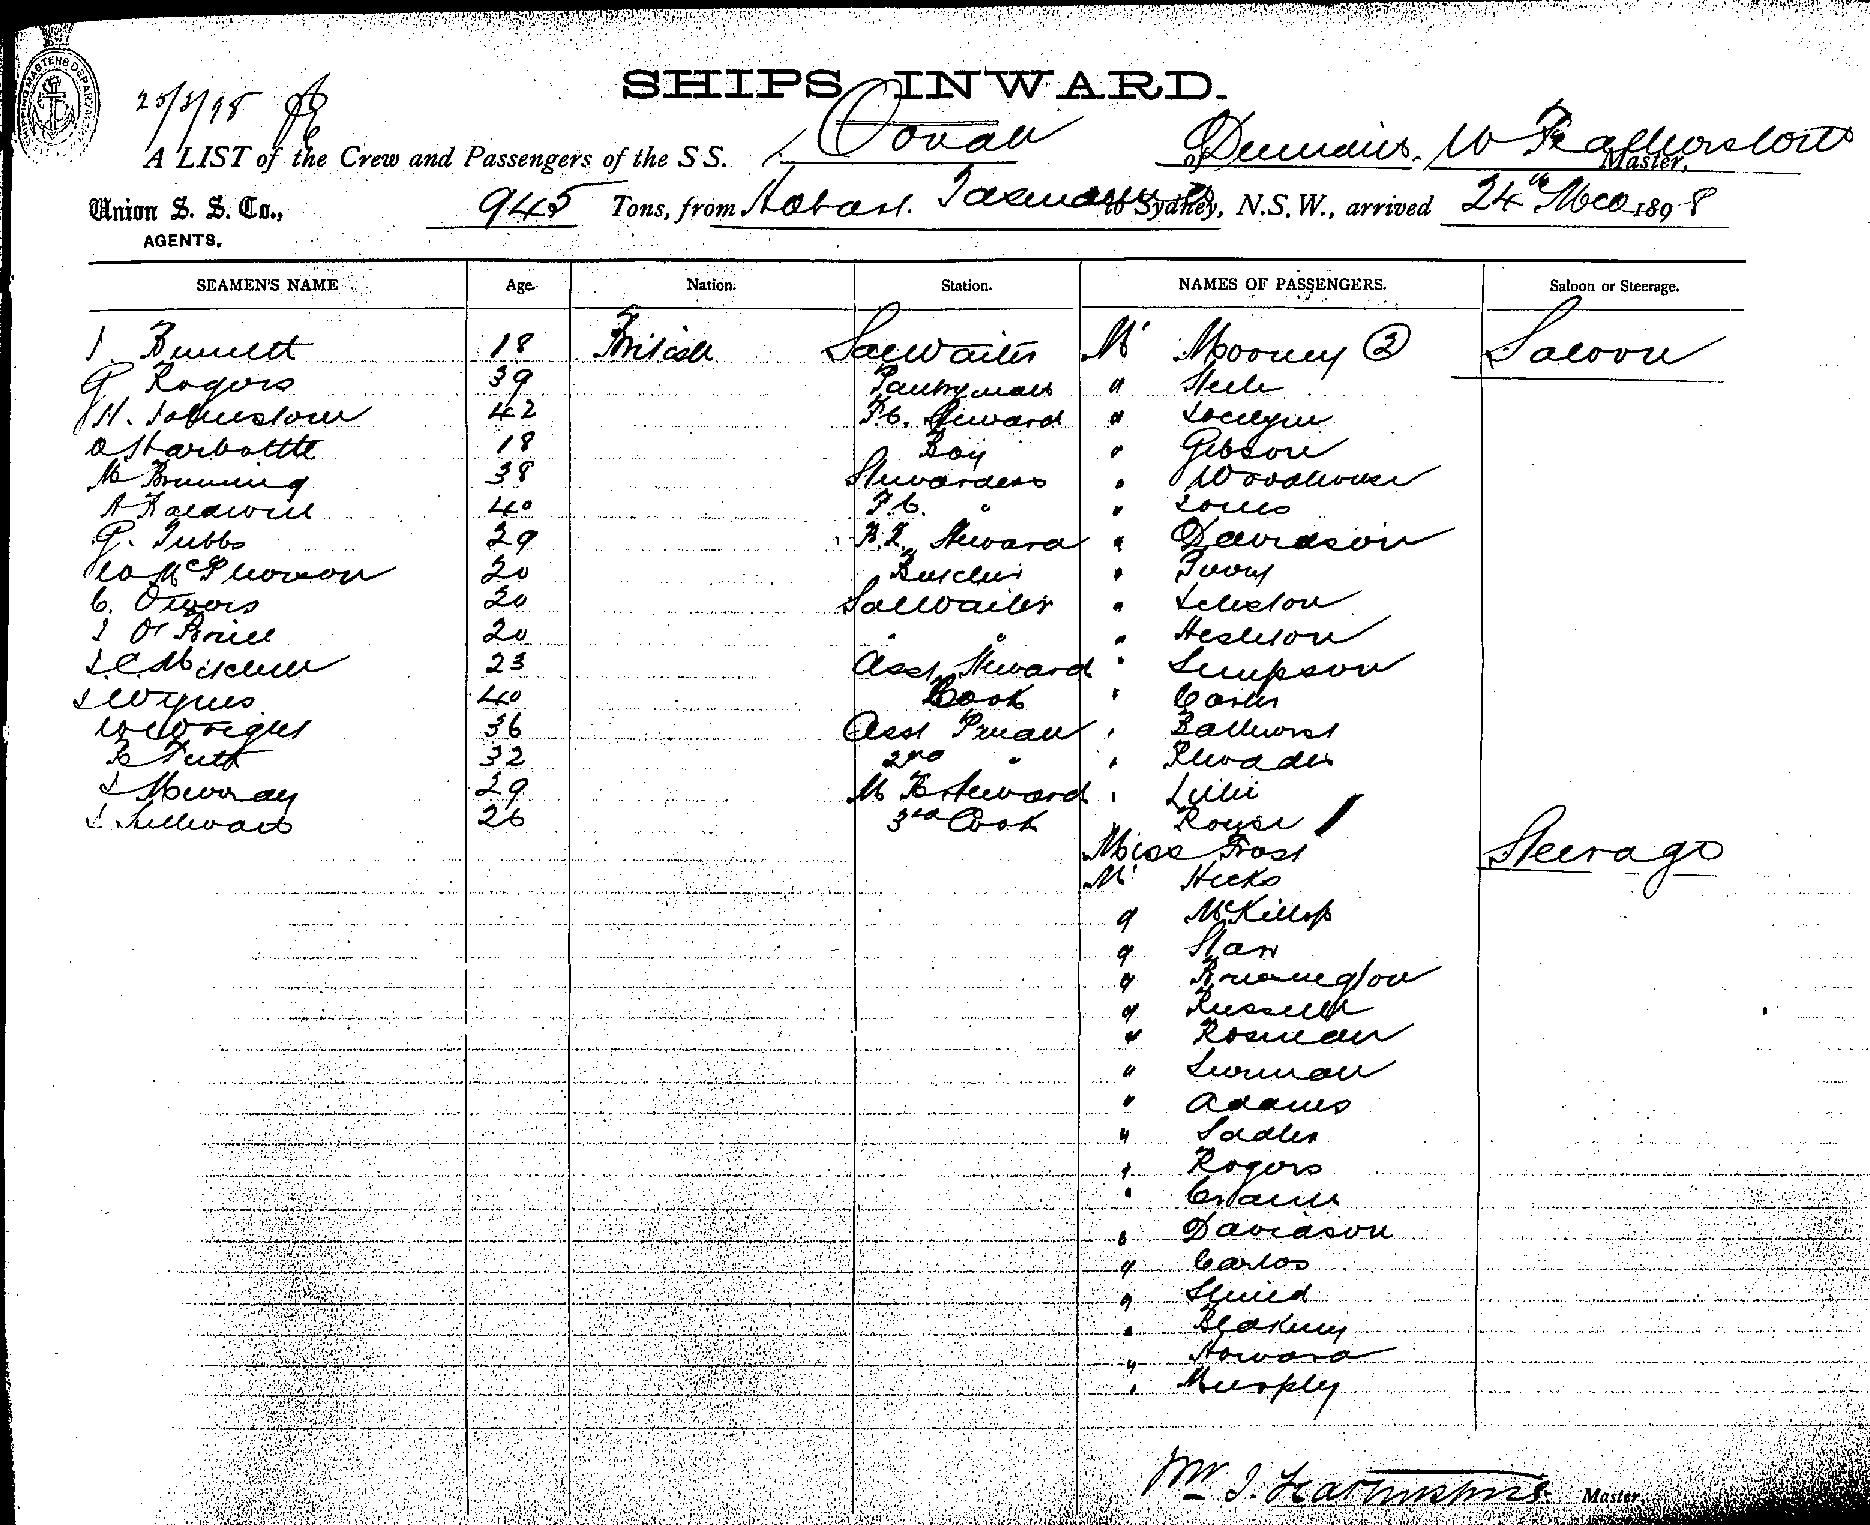 25/3/98
SHIPS INWARD.
A LIST of the Crew and Passengers of the S.S. Oonah of W Featherstone Master,
Union S. S. Co., 945 Tons, from Hobart Tasmania to Sydney, N.S.W., arrived 24th Mch 1898
AGENTS.
SEAMEN'S NAME Age. Nation. Station. NAMES OF PASSENGERS. Saloon or Steerage.
J. Bennett 18 British Sal Waiter Mr Mooney (2) Saloon
G Rogers 39 Pantryman " Steele
H. Johnstone 42 F.C. Steward " Jocelyn
A Harbottle 18 Boy " Gibson
M Brunning 38 Stewardess " Woodhouse
A Baldwin 40 F.C. " " Jones
G. Tubbs 29 Steward " Davidson
McPherson 20 Butcher "
C. 20 Sal Waiter "
J O'Brien 20 " " "
J. C. Mitchell 23 Asst Steward " Simpson
40 Cook " Carter
W Wright 36 Asst P'man " Bathurst
32 2nd " " Rhoades
J Murray 29 Steward " Lillie
J. Sullivan 26 3rd Cook Royse
Miss Frost Steerage
Mr Hicks
" McKillop
" Starr
"
" Russell
" Rosman
"
" Adams
" Sadler
" Rogers
"
" Davidson
" Carlos
"
" Blakeney
" Howard
" Murphy
Wm J. Featherstone Master.